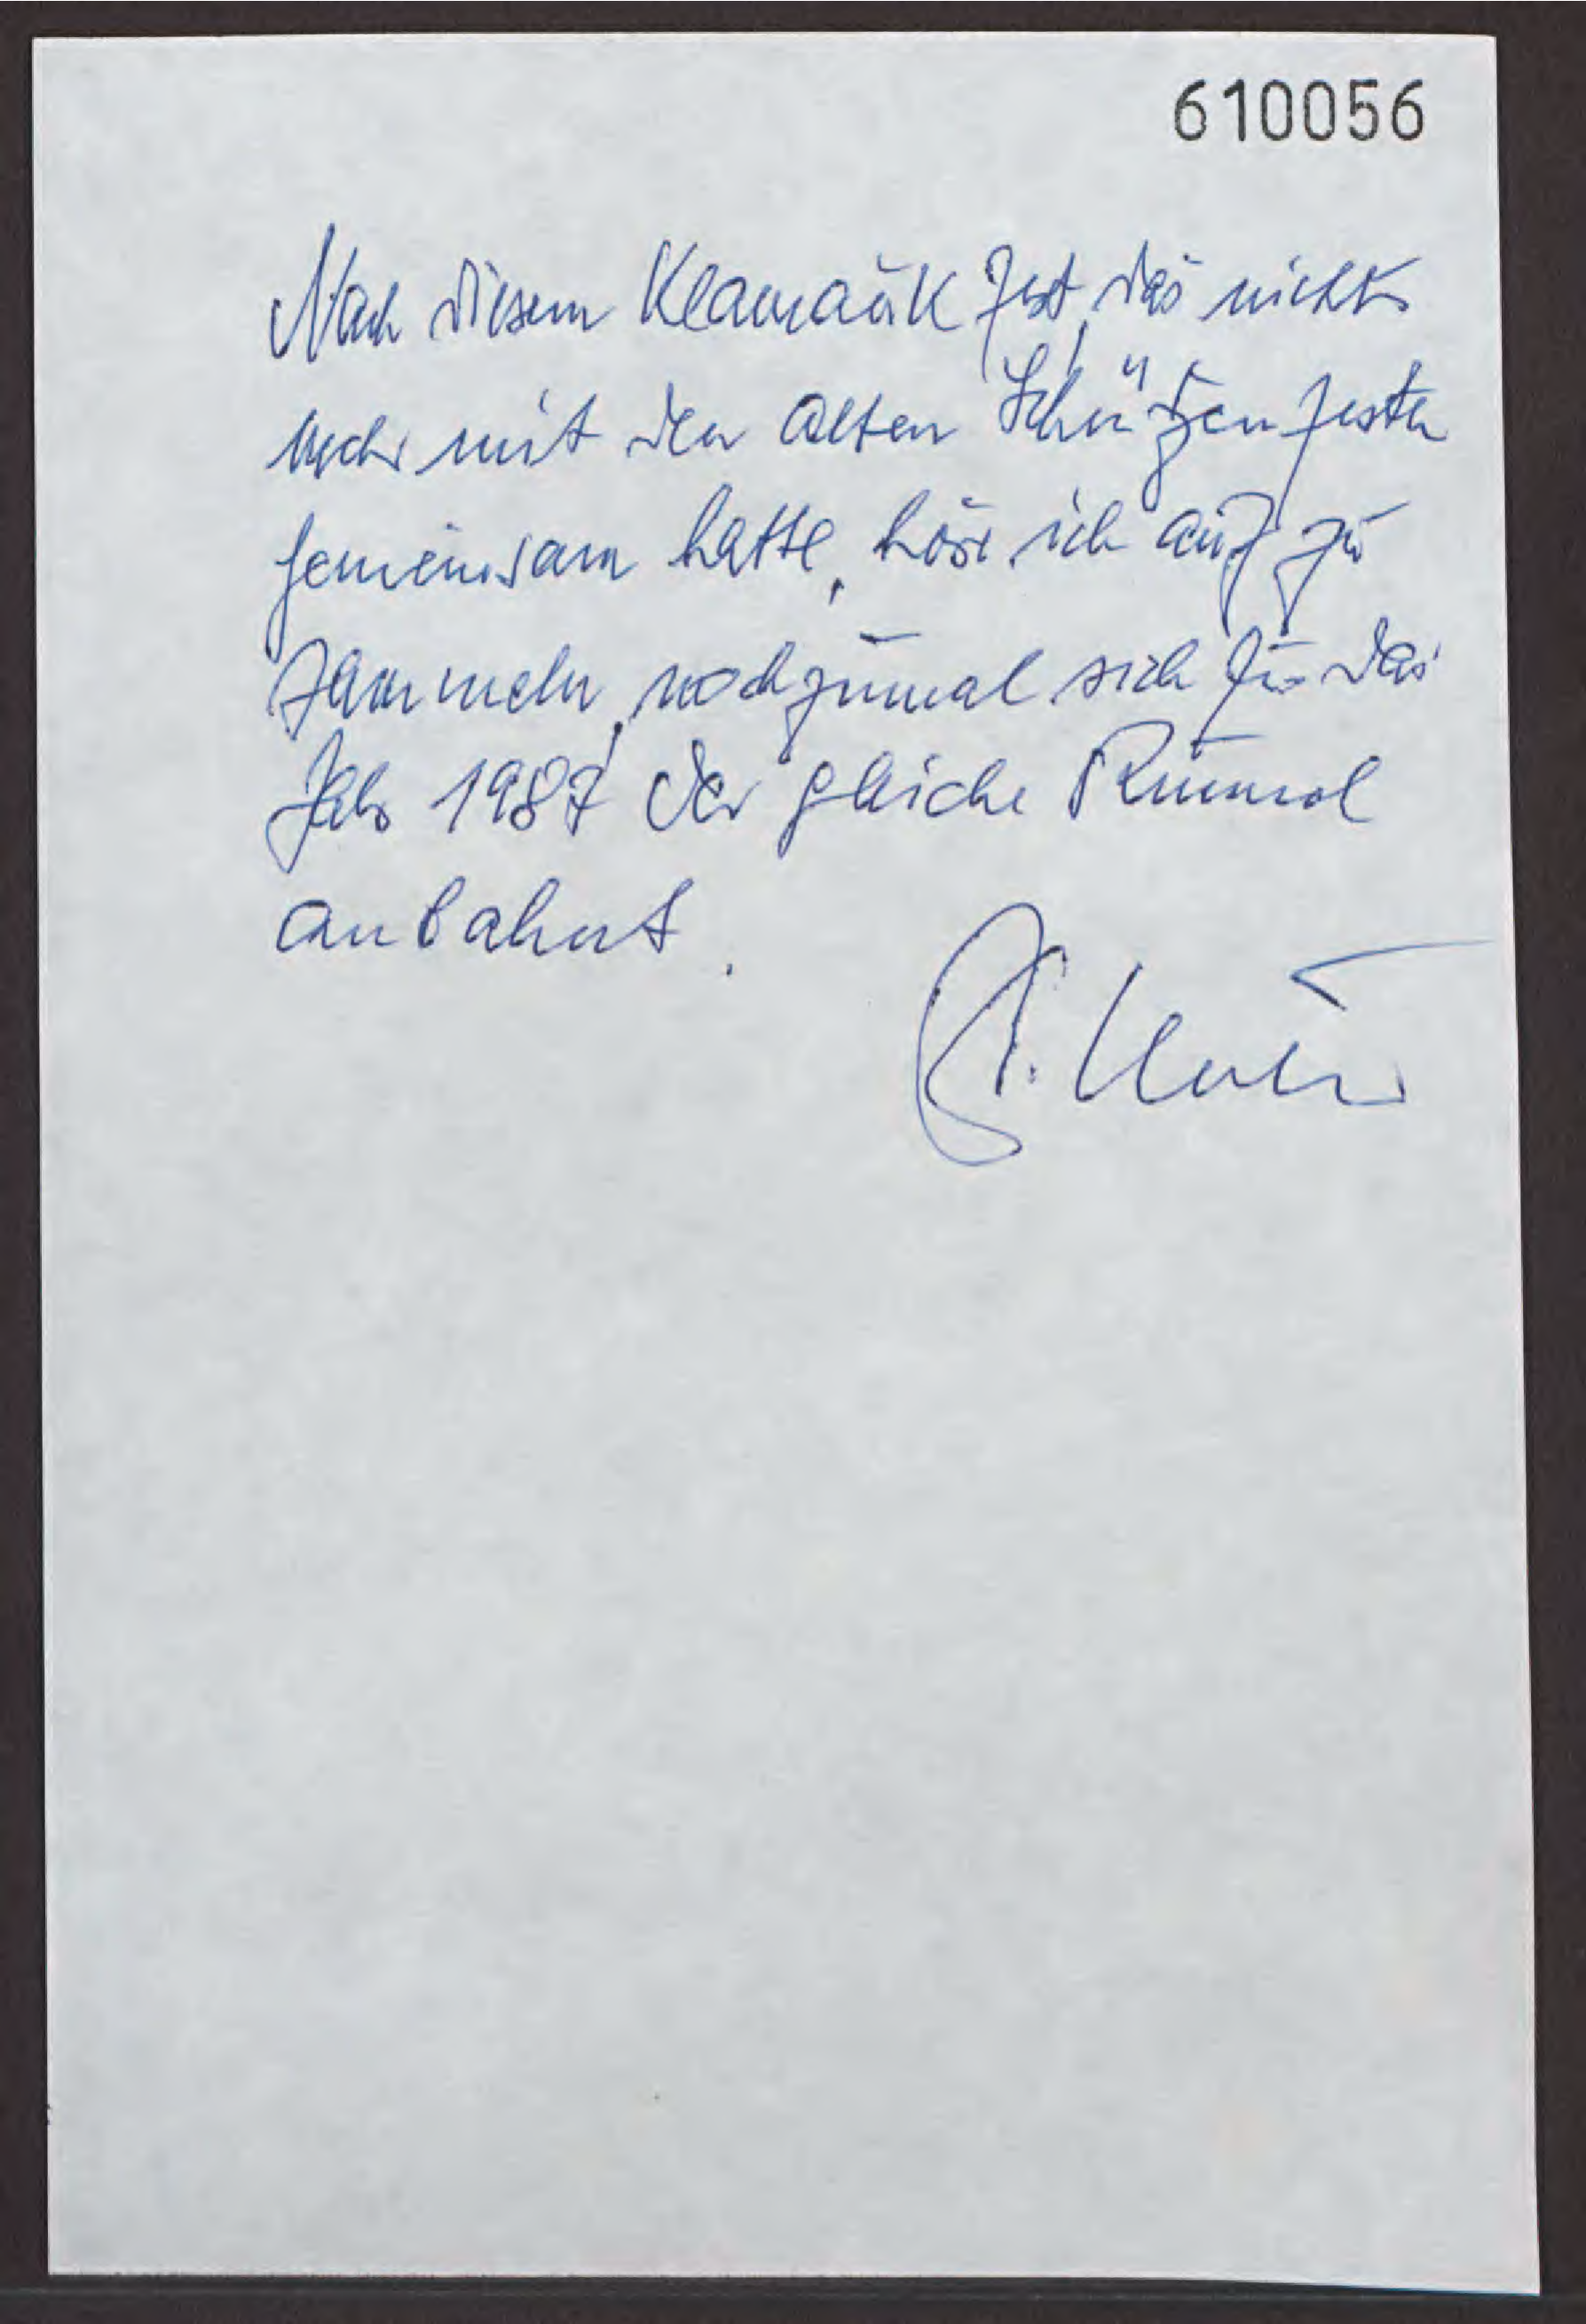 610056
Nach diesem Klamauk Fest, das nichts
mehr mit den alten Schützenfesten
gemeinsam hatte, höre ich auf zu
sammeln, noch zumal sich für das
Jahr 1987 der gleiche Rummel
anbahnt.